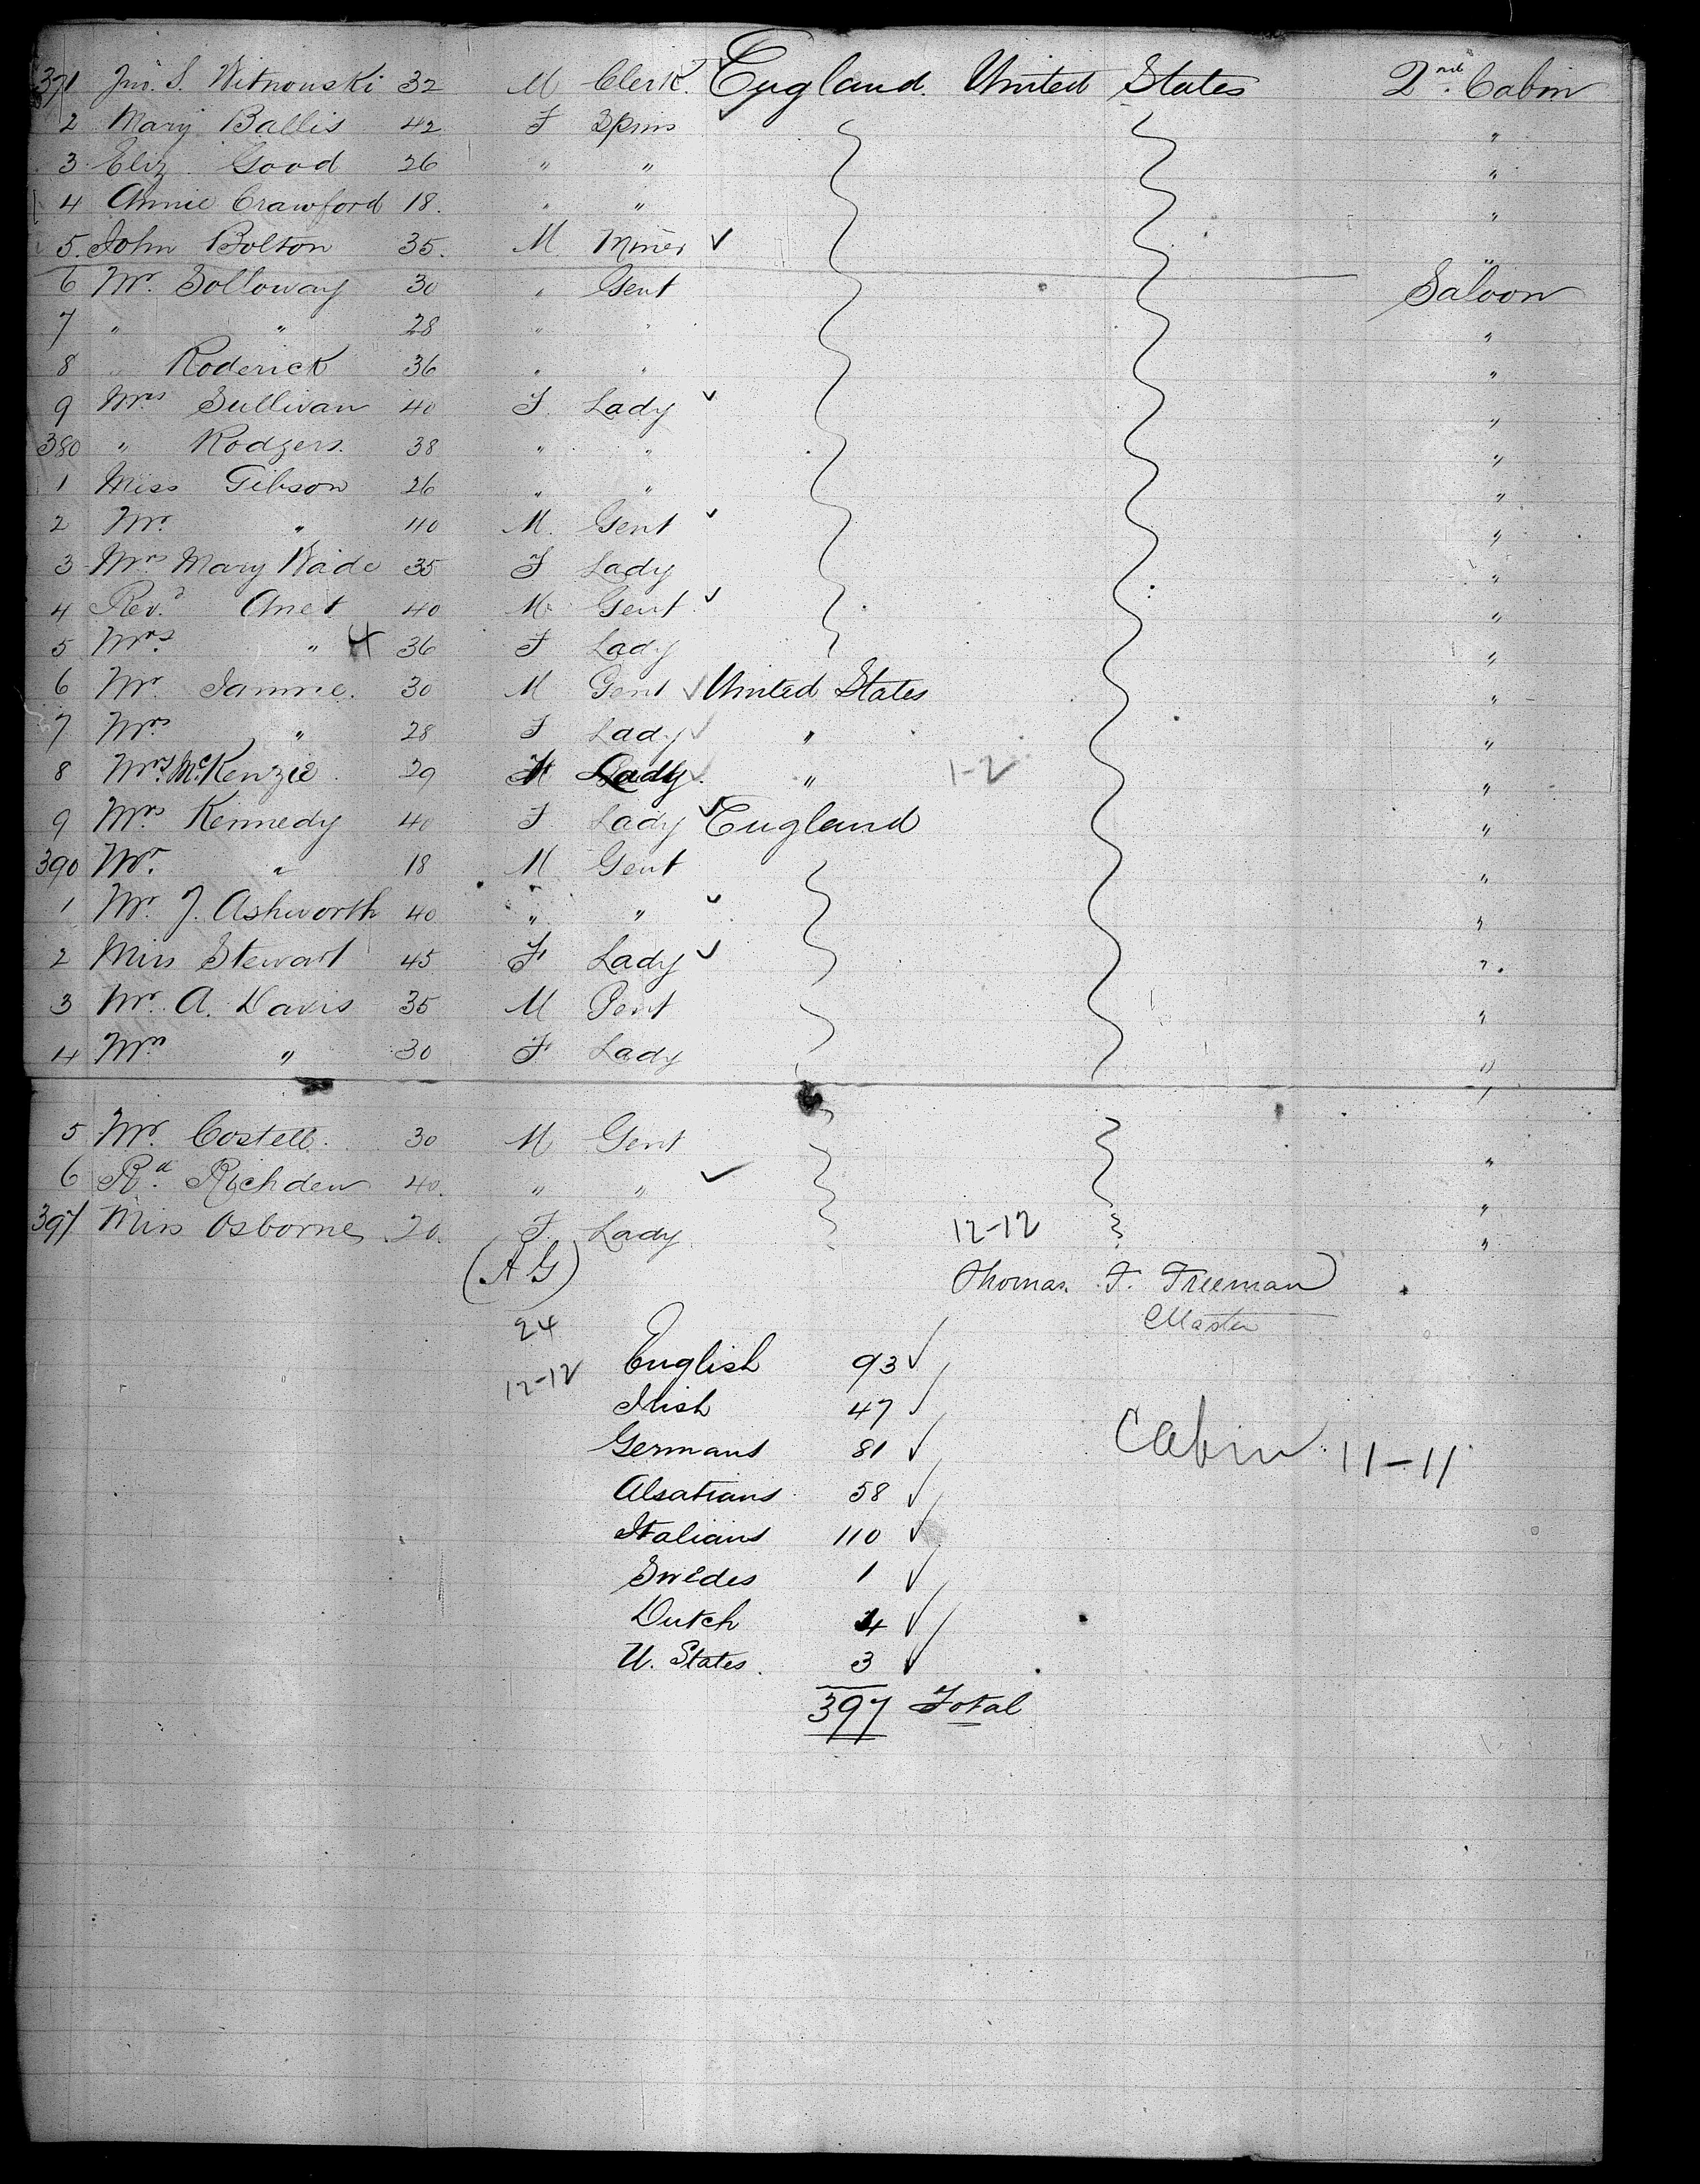 371 Jno. S. Witnouski 32 M Clerk. England. United States 2nd. Cabin
2 Mary Ballis 42 F Spins "
3 Eliz. Good 26 " " "
4 Annie Crawford 18. " " "
5. John Bolton 35. M Miner "
6 Mr. Solloway 30 " Gent Saloon
7 " " 28 " " "
8 " Roderick 36 " " "
9 Mrs Sullivan 40 F. Lady "
380 " Rodgers. 38 " " "
1 Miss Gibson 26 " " "
2 Mr. " 40 M. Gent "
3 Mrs Mary Wade 35 F Lady "
4 Revd. Anet 40 M. Gent. "
5 Mrs. " 4 36 F Lady "
6 Mr. 30 M Gent United States "
7 Mrs " 28 F Lady " "
8 Mrs. McKenzie 29 Lady. " 1-2 "
9 Mrs. Kennedy 40 F. Lady England "
390 Mr. " 18 M Gent "
1 Mr. J. Ashworth 40 " " "
2 Miss Stewart 45 F Lady "
3 Mr. A. Davis 35 M Gent "
4 Mrs " 30 F. Lady "
5 Mr. Costell. 30 M Gent "
6 Rd. 40. " " "
397 Miss Osborne 20. F. Lady. 12-12 "
(A G) Thomas. F. Freeman
24 Master
English 93
12-12
Irish 47
Germans 81 Cabin. 11-11
Alsatians 58
Italians 110
Swedes 1
Dutch 4
U. States. 3
397 Total